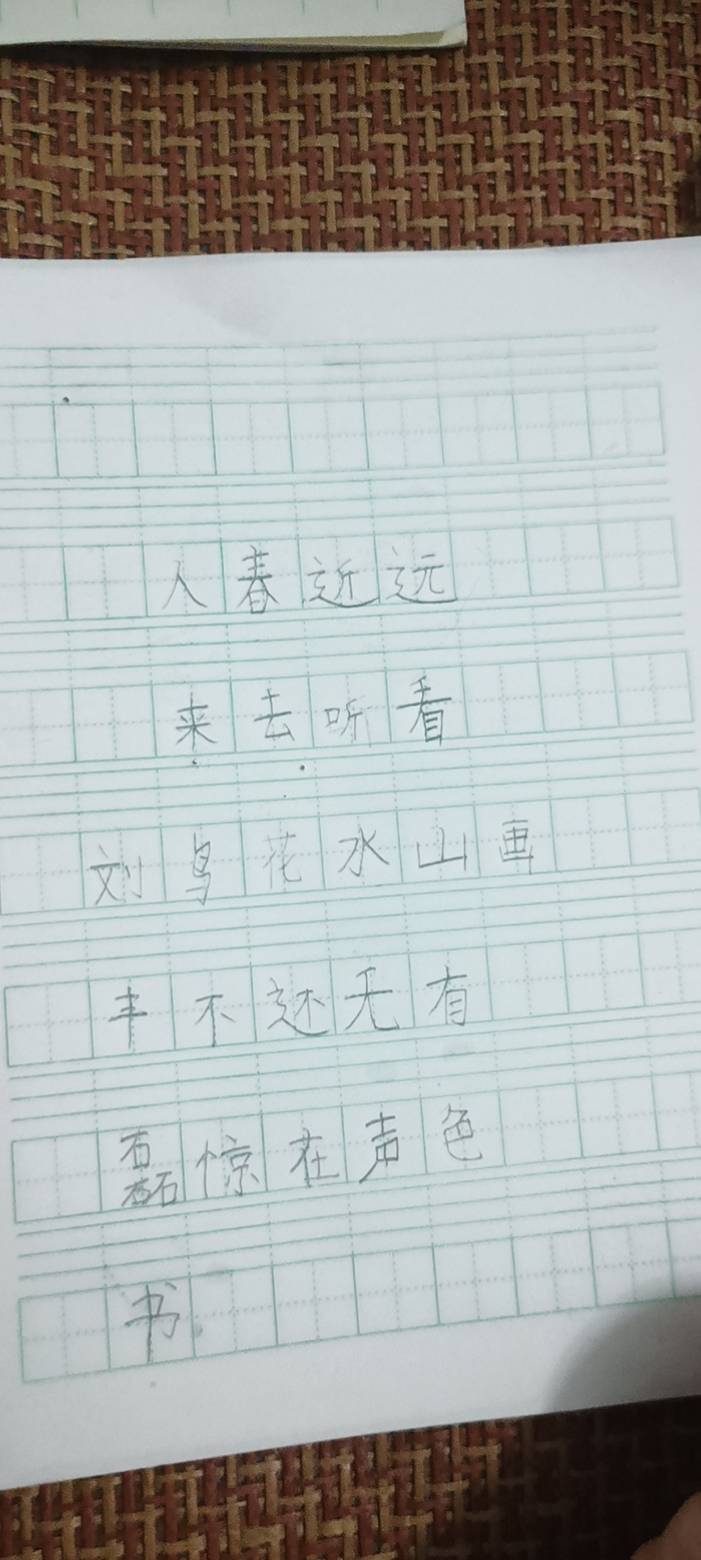 人春近远
来去听看
刘鸟花水山画
丰不还无有
磊惊在声色
书